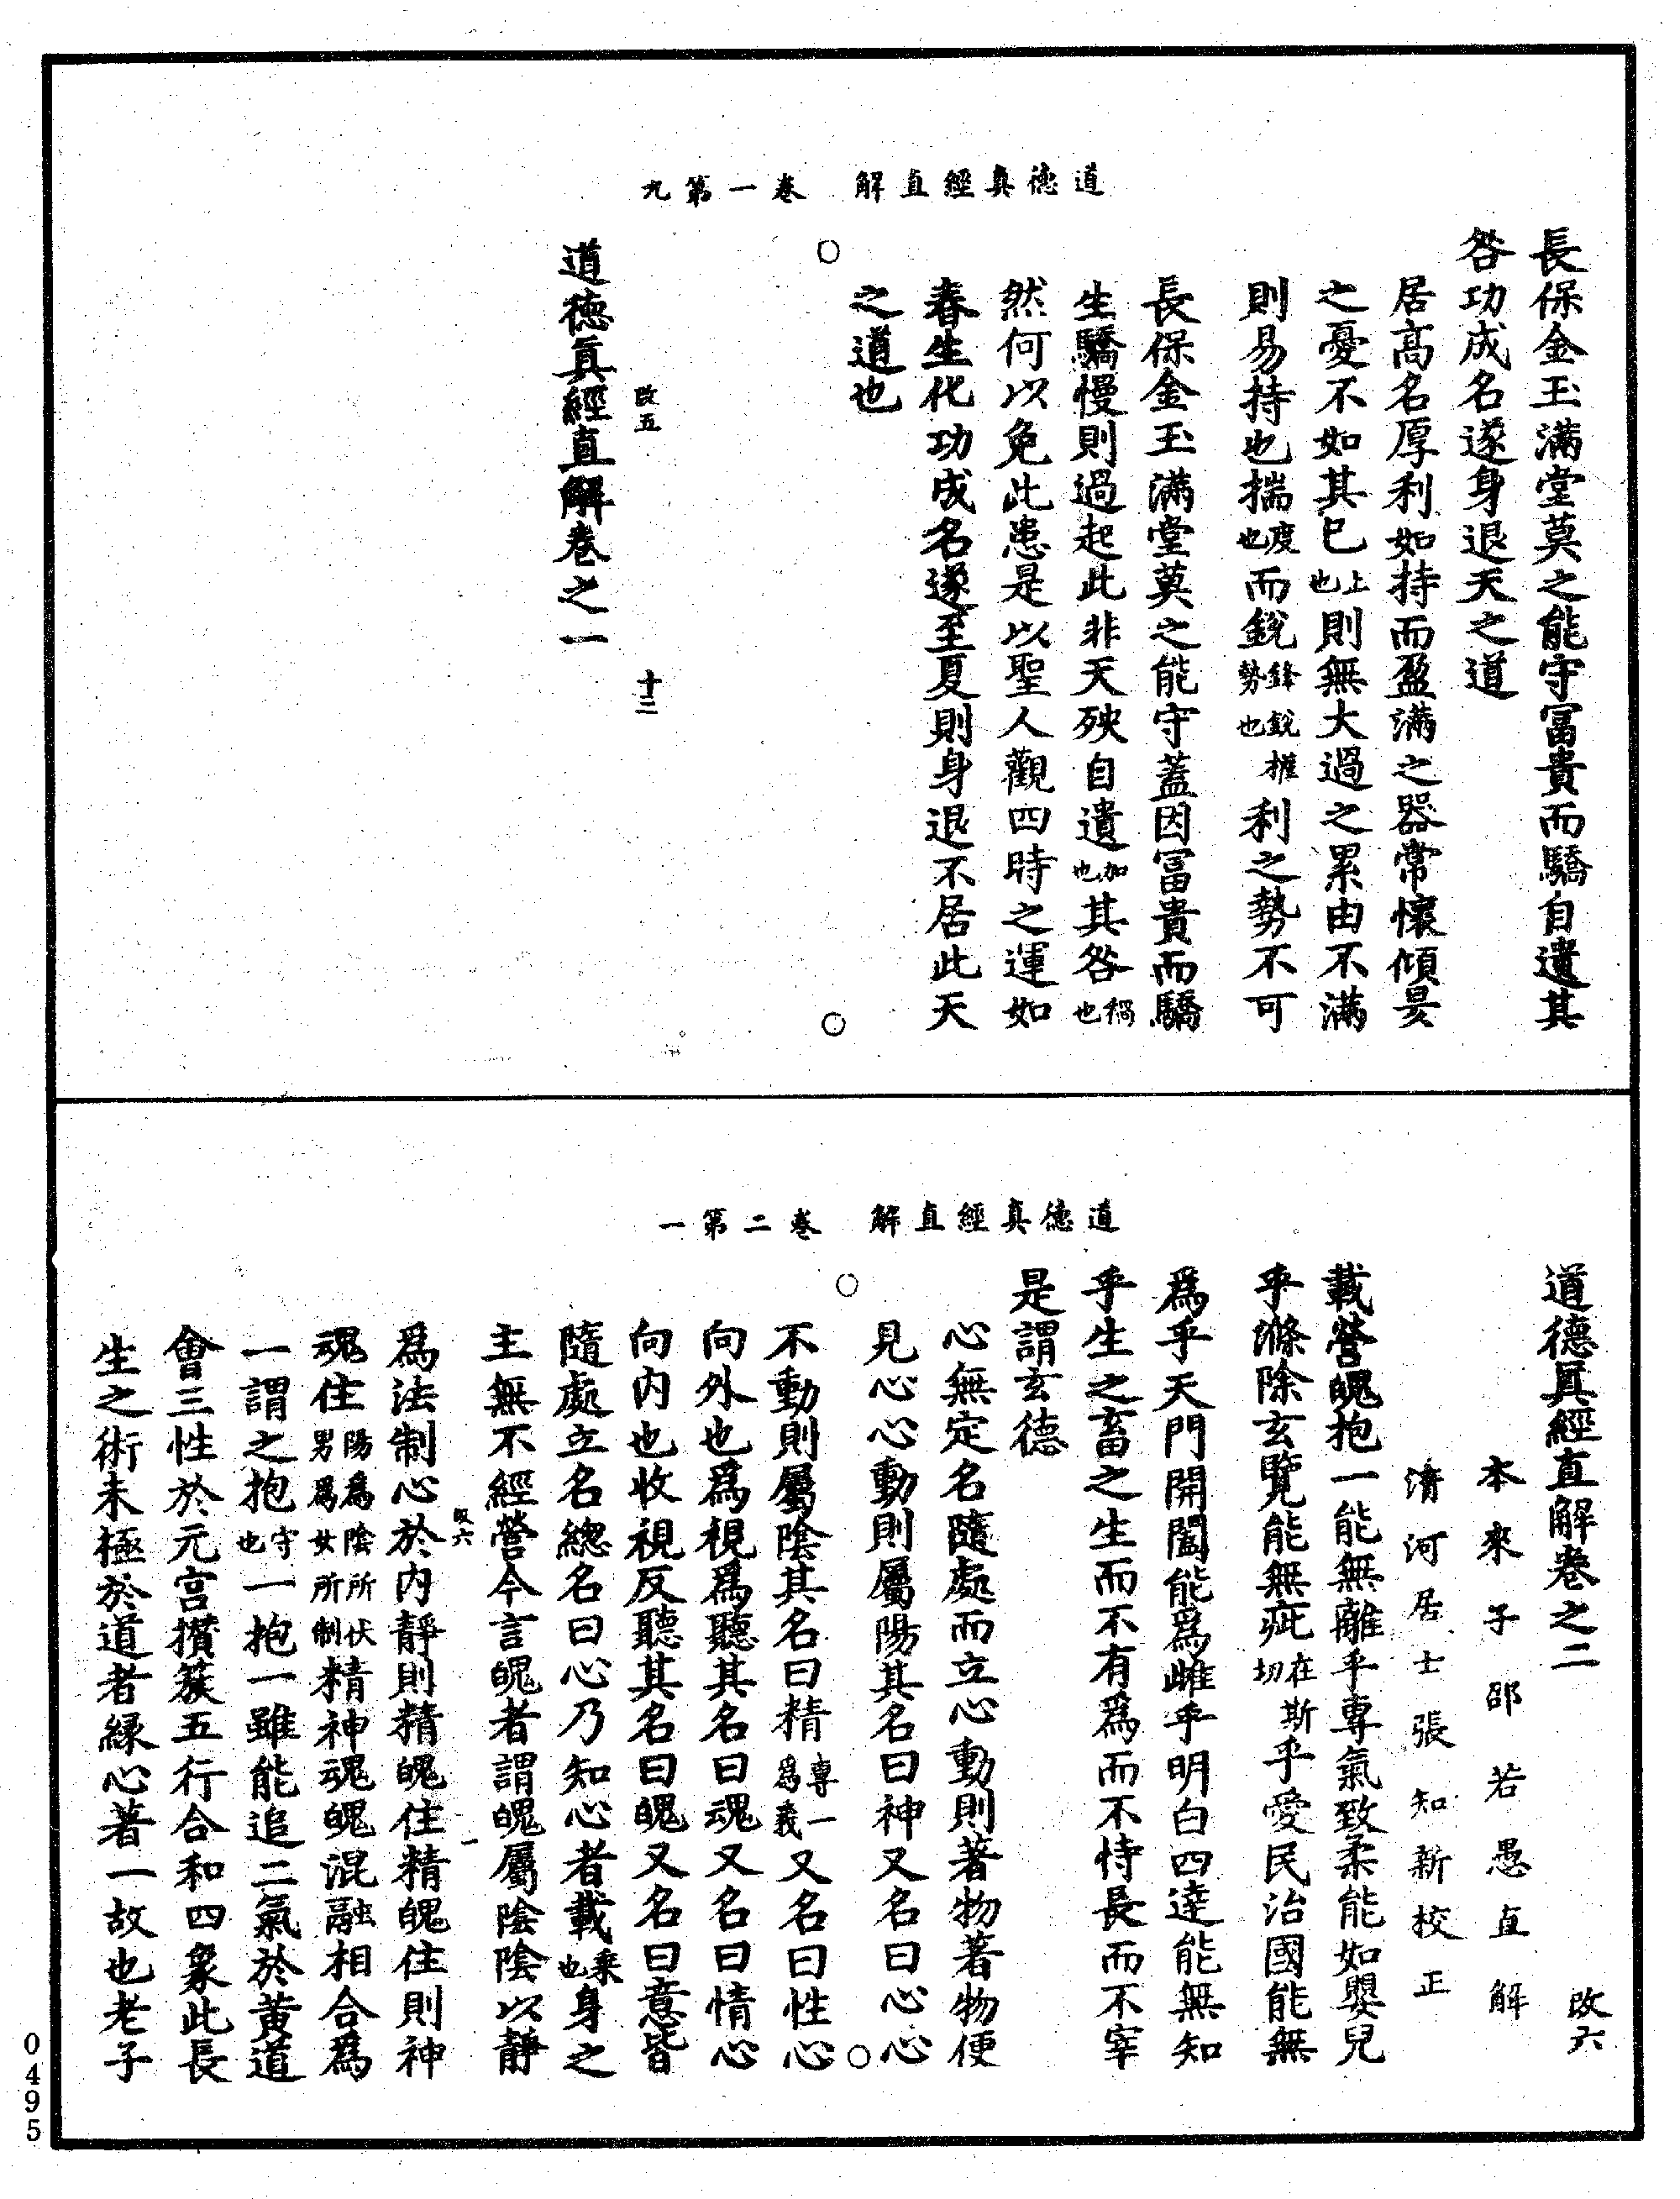 道德真經直解　卷一第九
長保金玉滿堂莫之能守富貴而驕自遺其
咎功成名遂身退天之道
居高名厚利如持而盈滿之器常懷傾昃
之憂不如其已上也則無大過之累由不滿
則易持也揣度也而銳鋒銳權勢也利之勢不可
長保金玉滿堂莫之能守蓋因富貴而驕
生驕慢則過起此非天殃自遺加也其咎禍也
然何以免此患是以聖人觀四時之運如
春生化功成名遂至夏則身退不居此天
之道也
改五
十三
道德真經直解卷之一
道德真經直解　卷二第一
道德真經直解卷之二
改六
本來子邵若愚直解
清河居士張知新校正
載營魄抱一能無離乎專氣致柔能如嬰兒
乎滌除玄覽能無疵在斯切乎愛民治國能無
為乎天門開闔能為雌乎明白四達能無知
乎生之畜之生而不有為而不恃長而不宰
是謂玄德
心無定名隨處而立心動則著物著物便
見心心動則屬陽其名曰神又名曰心心
不動則屬陰其名曰精專一為義又名曰性心
向外也為視為聽其名曰魂又名曰情心
向內也收視反聽其名曰魄又名曰意皆
隨處立名總名曰心乃知心者載乘也身之
主無不經營今言魄者謂魄屬陰陰以靜
改六
一
為法制心於內靜則精魄住精魄住則神
魂住陽為陰所伏男為女所制精神魂魄混融相合為
一謂之抱守也一抱一雖能追二氣於黃道
會三性於元宮攢簇五行合和四象此長
生之術未極於道者緣心著一故也老子
0495